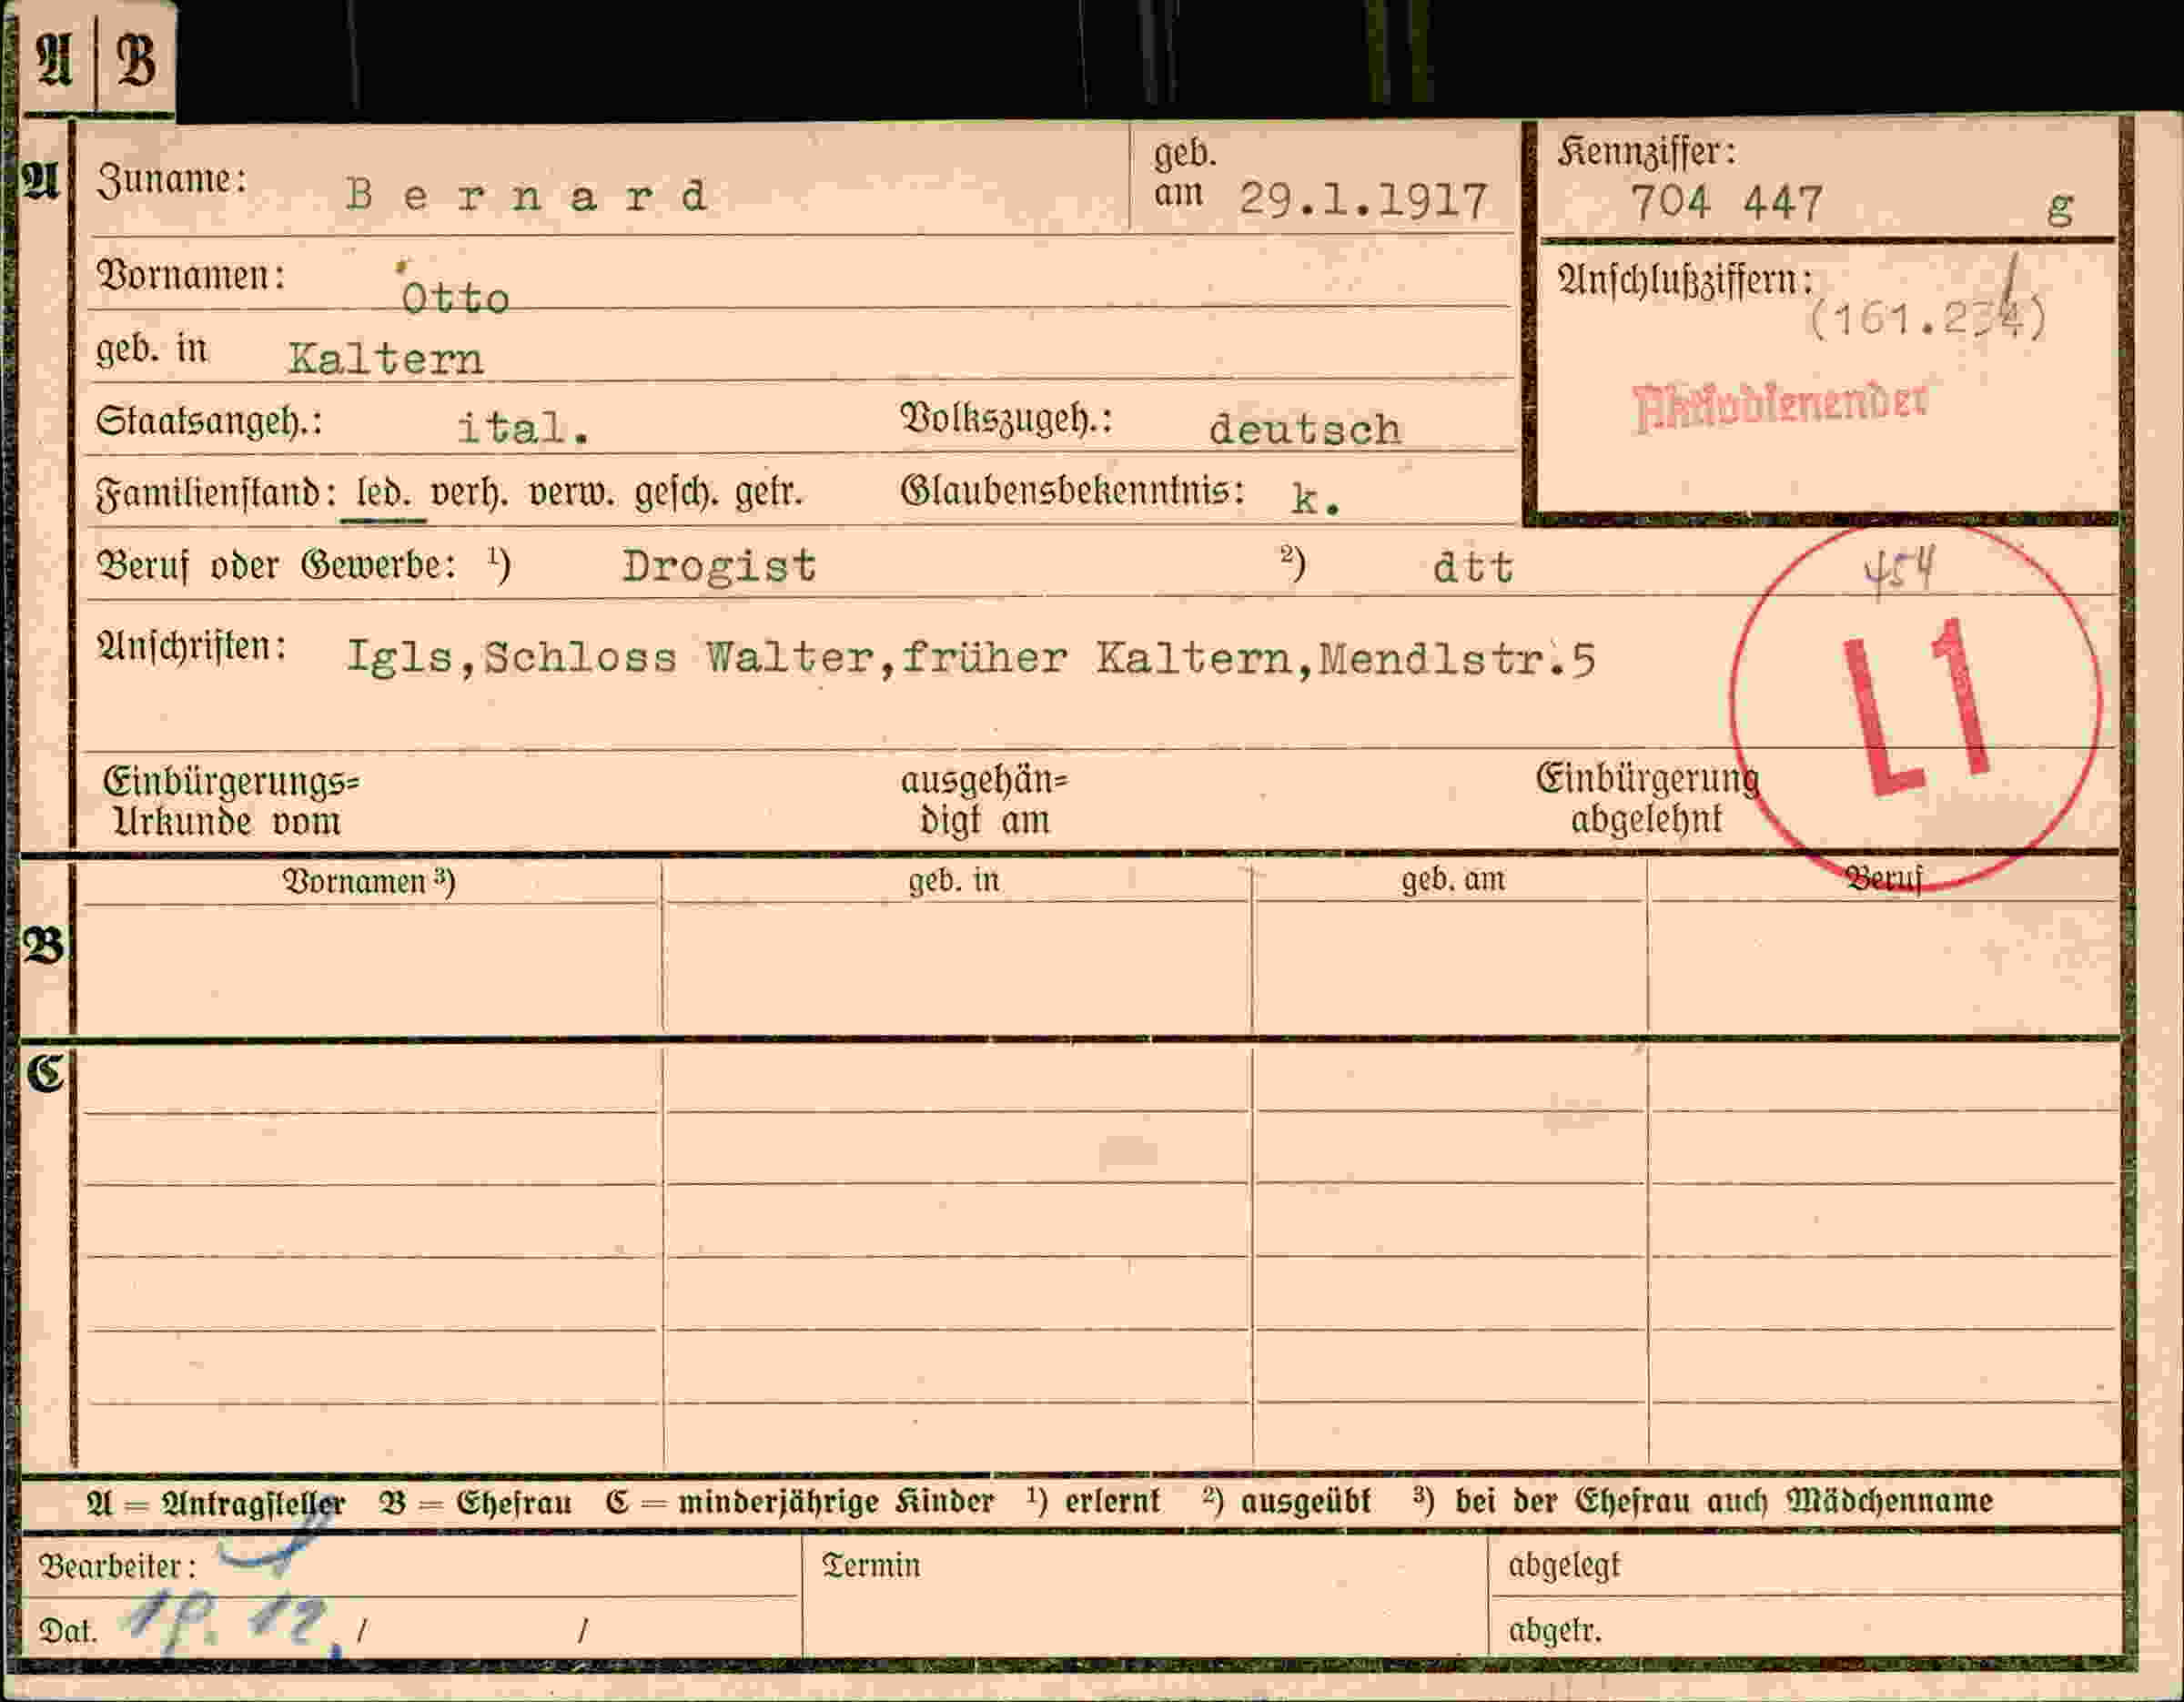 A | B
A Zuname: Bernard geb. am 29.1.1917 Kennziffer: 704 447 g
Vornamen: Otto
Anschlußziffern: (161.234)
geb. in Kaltern
Aktivdienender
Staatsangeh.: ital. Volkszugeh.: deutsch
Familienstand: led. verh. verw. gesch. getr. Glaubensbekenntnis: k.
Beruf oder Gewerbe: 1) Drogist 2) dtt 454
Anschriften: Igls,Schloss Walter,früher Kaltern,Mendlstr.5
L1
Einbürgerungs= ausgehän= Einbürgerung
Urkunde vom digt am abgelehnt
Vornamen 3) geb. in geb. am Beruf
B
C
A = Antragsteller B = Ehefrau C = minderjährige Kinder 1) erlernt 2) ausgeübt 3) bei der Ehefrau auch Mädchenname
Bearbeiter: Termin abgelegt
Dat. 19. 12. / / abgetr.